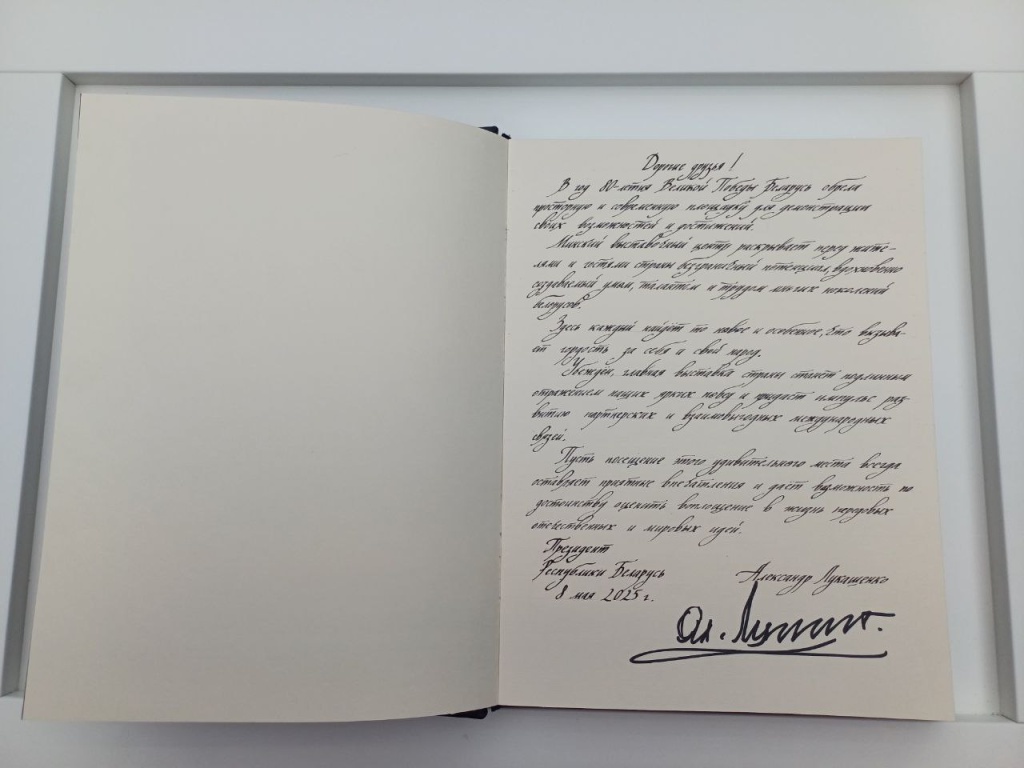 Дорогие друзья!
В год 80-летия Великой Победы Беларусь обрела
просторную и современную площадку для демонстрации
своих возможностей и достижений.
Минский выставочный центр раскрывает перед жите-
лями и гостями страны безграничный потенциал, вдохновенно
создаваемый умом, талантом и трудом многих поколений
белорусов.
Здесь каждый найдёт то новое и особенное, что вызыва-
ет гордость за себя и свой народ.
Убеждён, главная выставка страны станет подлинным
отражением наших ярких побед и придаст импульс раз-
витию партнерских и взаимовыгодных международных
связей.
Пусть посещение этого удивительного места всегда
оставляет приятные впечатления и даёт возможность по
достоинству оценить воплощение в жизнь передовых
отечественных и мировых идей.
Президент
Республики Беларусь Александр Лукашенко
8 мая 2025 г.